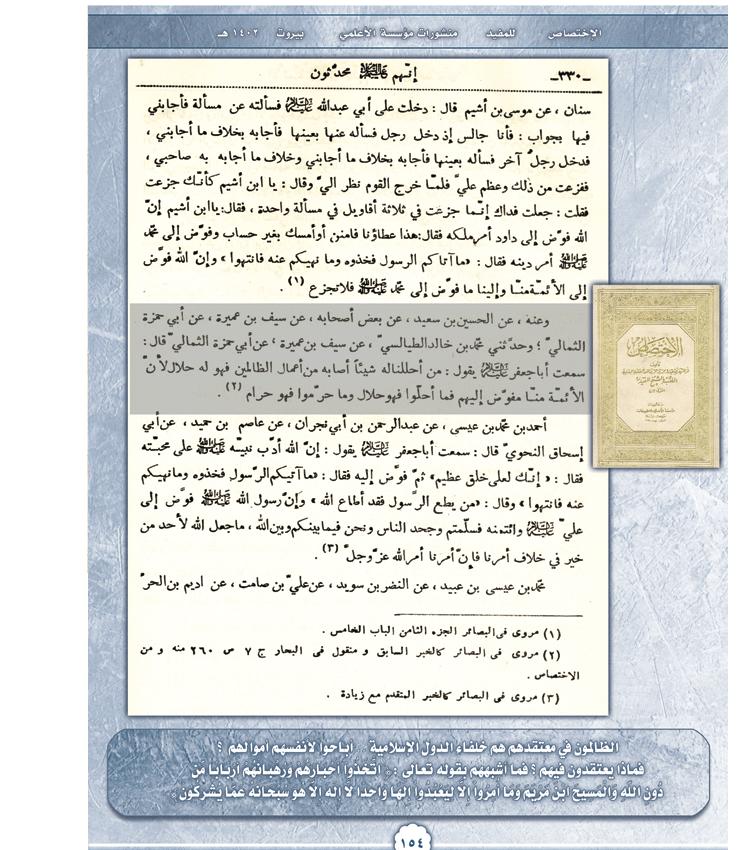 الإختصاص للمفيد منشورات مؤسسة الأعلمي بيروت ١٤٠٢ هـ
ـ٣٣٠ـ إنّهم عليهم السلام محدّثون
سنان ، عن موسى بن أشيم قال : دخلت على أبي عبدالله عليه السلام فسألته عن مسألة فأجابني
فيها بجواب : فأنا جالس إذ دخل رجل فسأله عنها بعينها فأجابه بخلاف ما أجابني ،
فدخل رجلٌ آخر فسأله بعينها فأجابه بخلاف ما أجابني وخلاف ما أجابه به صاحبي ،
ففزعت من ذلك وعظم عليّ فلمّا خرج القوم نظر اليّ وقال : يا ابن أشيم كأنّك جزعت
فقلت : جعلت فداك إنّما جزعت في ثلاثة أقاويل في مسألة واحدة ، فقال: يا ابن أشيم إنّ
الله فوّض إلى داود أمر ملكه فقال: هذا عطاؤنا فامنن أو أمسك بغير حساب وفوّض إلى محمّد
صلى الله عليه وآله أمر دينه فقال : «ما آتاكم الرسول فخذوه وما نهيكم عنه فانتهوا» وإنّ الله فوّض
إلى الأئمّة منّا وإلينا ما فوّض إلى محمّد صلى الله عليه وآله فلا تجزع (١) .
وعنه ، عن الحسين بن سعيد ، عن بعض أصحابه ، عن سيف بن عميرة ، عن أبي حمزة
الثماليّ ؛ وحدّثني محمّد بن خالد الطيالسيّ ، عن سيف بن عميرة ، عن أبي حمزة الثماليّ قال :
سمعت أبا جعفر عليه السلام يقول : من أحللنا له شيئاً أصابه من أعمال الظالمين فهو له حلال لأنّ
الأئمّة منّا مفوّض إليهم فما أحلّوا فهو حلال وما حرّموا فهو حرام (٢) .
أحمد بن محمّد بن عيسى ، عن عبدالرحمن بن أبي نجران ، عن عاصم بن حميد ، عن أبي
إسحاق النحويّ قال : سمعت أبا جعفر عليه السلام يقول : إنّ الله أدّب نبيّه صلى الله عليه وآله على محبّته
فقال : « إنّك لعلى خلق عظيم» ثمّ فوّض إليه فقال : «ما آتيكم الرّسول فخذوه وما نهيكم
عنه فانتهوا » وقال : «من يطع الرّسول فقد أطاع الله » وإنّ رسول الله صلى الله عليه وآله فوّض إلى
عليّ عليه السلام وائتمنه فسلّمتم وجحد الناس ونحن فيما بينكم وبين الله ، ما جعل الله لأحد من
خير في خلاف أمرنا فإنّ أمرنا أمر الله عزّ وجلّ (٣) .
محمّد بن عيسى بن عبيد ، عن النضر بن سويد ، عن عليّ بن صامت ، عن اديم بن الحرّ
(١) مروى فى البصائر الجزء الثامن الباب الخامس .
(٢) مروى فى البصائر كالخبر السابق و منقول فى البحار ج ٧ ص ٢٦٠ منه و من
الاختصاص .
(٣) مروى فى البصائر كالخبر المتقدم مع زيادة .
الإختصاص
الظالمون في معتقدهم هم خلفاء الدول الاسلامية .. أباحوا لانفسهم أموالهم ؟
فماذا يعتقدون فيهم ؟ فما أشبههم بقوله تعالى : « اتخذوا أحبارهم ورهبانهم أربابا من
دون الله والمسيح ابن مريم وما أمروا إلا ليعبدوا إلها واحدا لا إله إلا هو سبحانه عما يشركون »
١٥٤